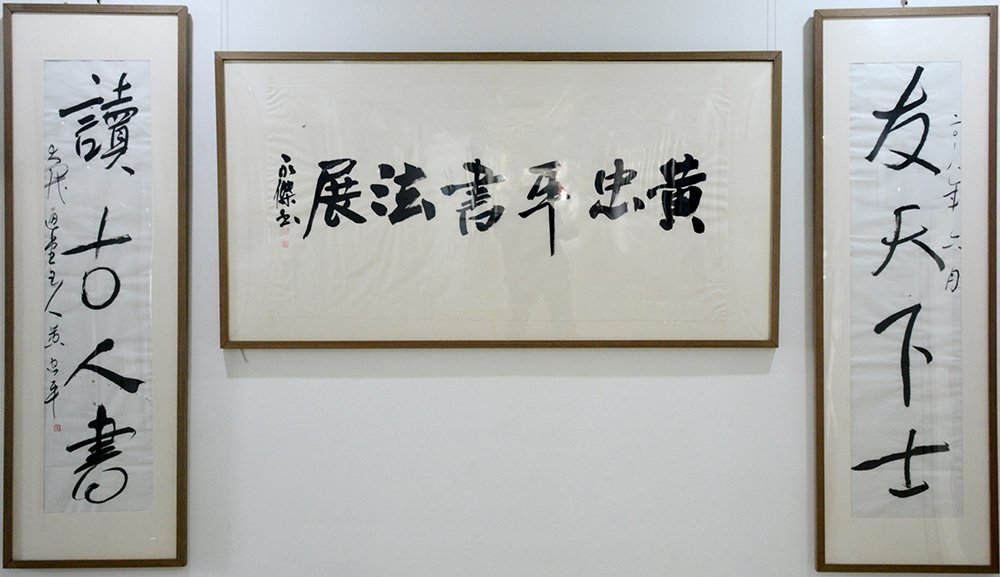 友天下士
二〇一八年六月
黄忠平書法展
永傑书
讀古人書
主人黄忠平